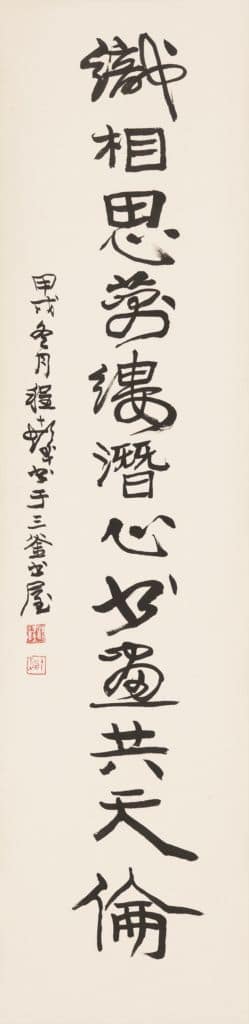 織相思萬縷潛心书畫共天倫
甲戌冬月程十髮书于三釜书屋